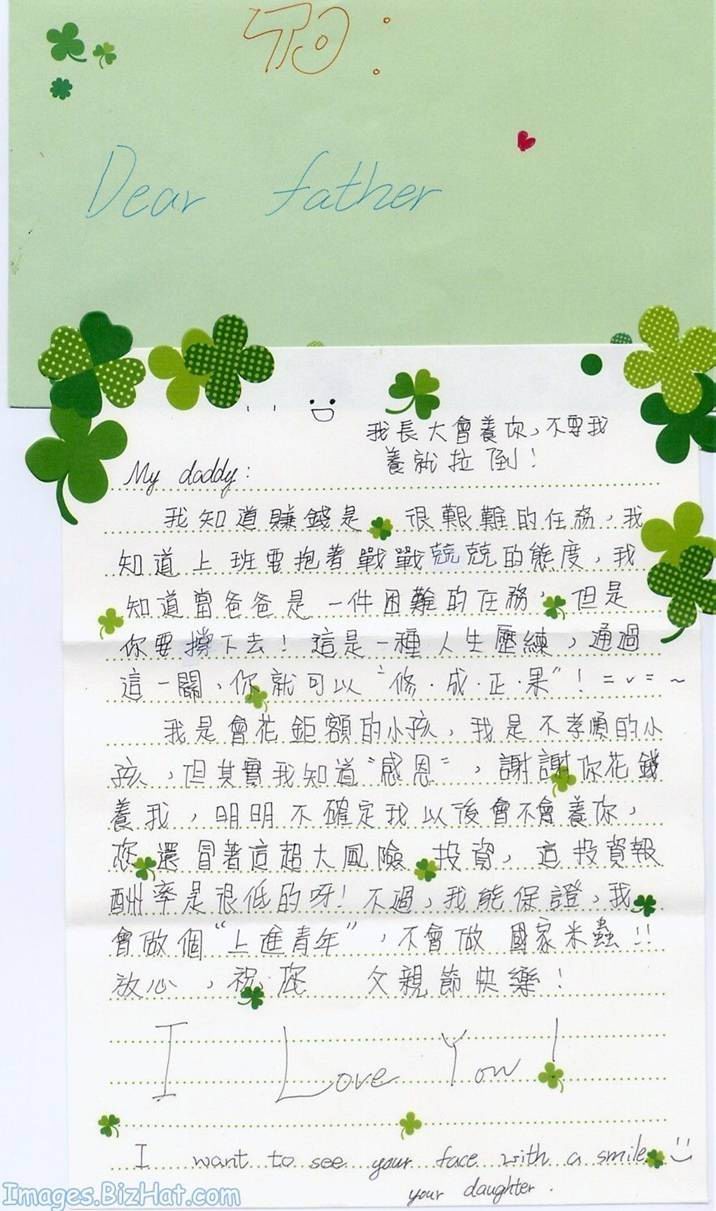 To:
Dear father
我長大會養你,不要我
養就拉倒!
My daddy:
我知道賺錢是 很艱難的任務,我
知道上班要抱著戰戰兢兢的態度,我
知道當爸爸是一件困難的任務,但是
你要撐下去!這是一種人生歷練,通過
這一關,你就可以“修.成.正.果”!=v=~
我是會花鉅額的小孩,我是不孝順的小
孩,但其實我知道“感恩”,謝謝你花錢
養我,明明不確定我以後會不會養你,
您還冒著這超大風險 投資,這投資報
酬率是很低的呀!不過,我能保證,我
會做個“上進青年”,不會做 國家米蟲!!
放心,祝您 父親節快樂!
I Love You!
I want to see your face with a smile
your daughter.
Images.BizHat.com